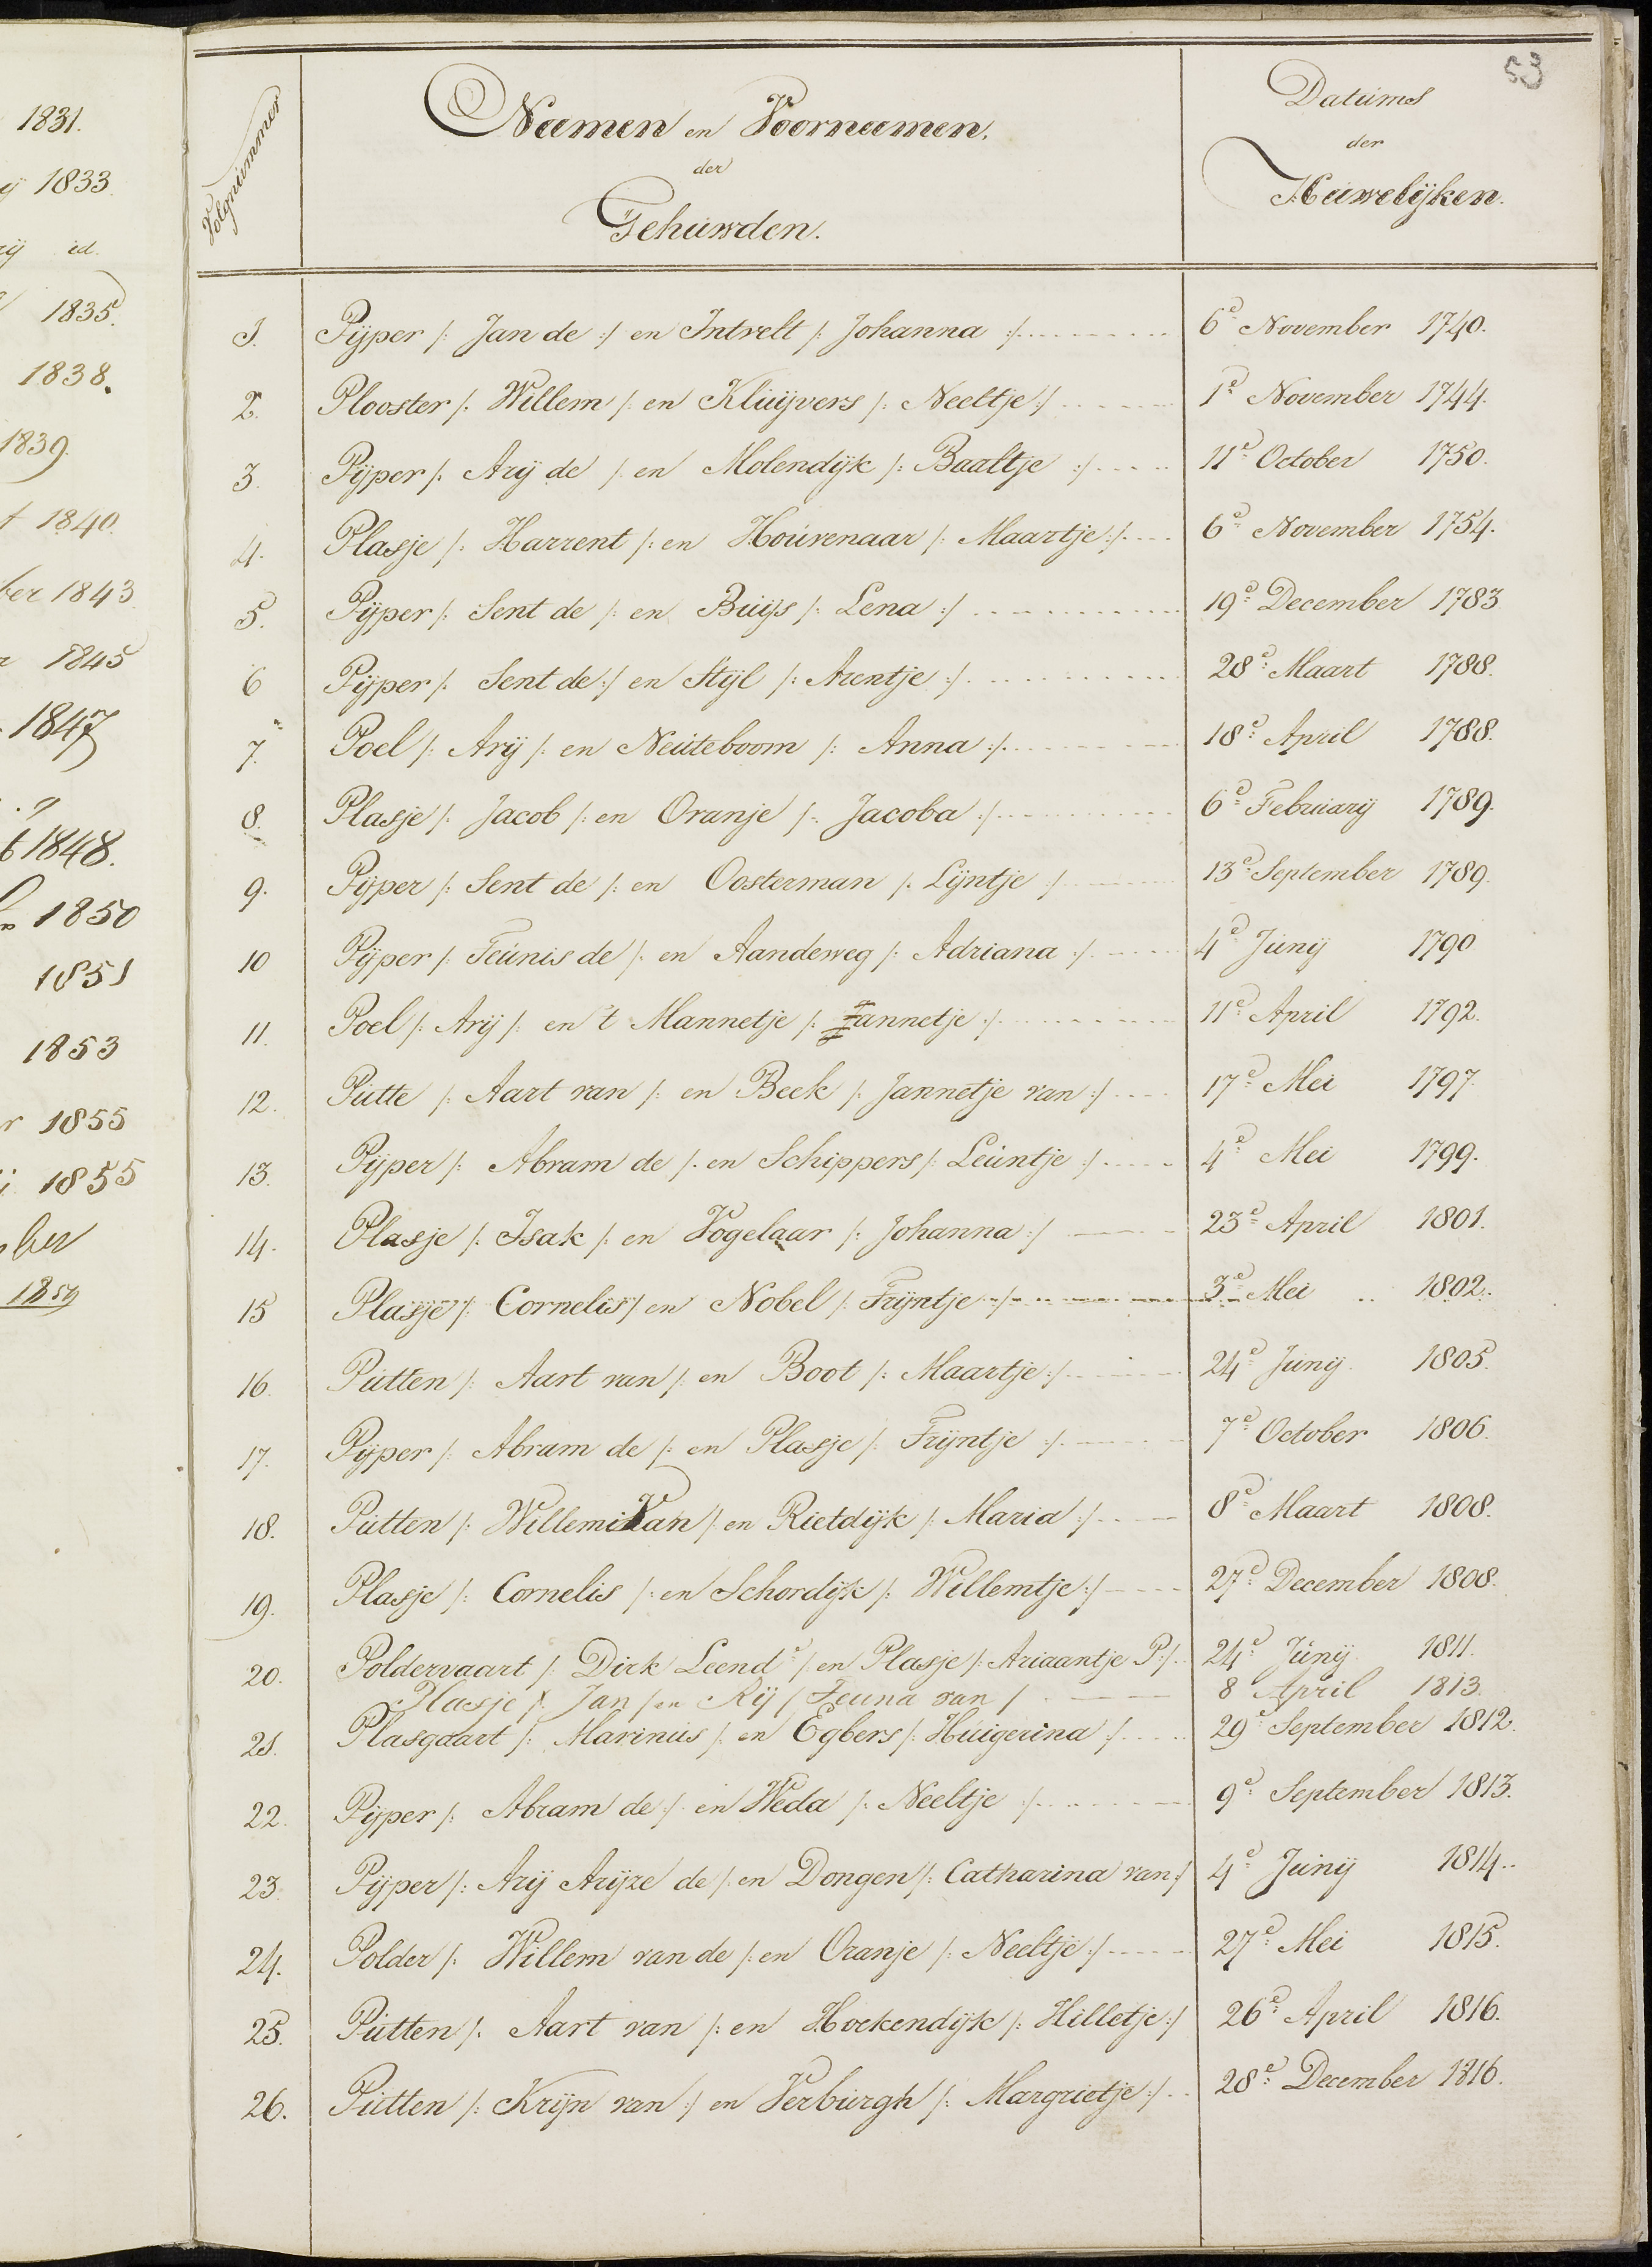 1831.
1833.
id.
1835.
1838.
1839.
1840.
ber 1843
1845
1847
1848.
1850
1851
1853
1855
1855
ber
1859
53
Volgnummer
Naamen en Voornaamen.
der
Gehuwden.
Datums
der
Huwelijken.
1. Pijper /: Jan de :/ en Intvelt /: Johanna :/ 6e November 1740.
2. Plooster /: Willem /: en Kluijvers /: Neeltje :/ 1e November 1744.
3. Pijper /: Arij de /: en Molendijk /: Baaltje :/ 11e October 1750.
4. Plasje /: Harrent /: en Hourenaar /: Maartje :/ 6e November 1754.
5. Pijper /: Sent de /: en Buijs /: Lena :/ 19e December 1783
6 Pijper /: Sent de :/ en Stijl /: Arentje :/ 28e Maart 1788.
7. Poel /: Arij /: en Neuteboom /: Anna :/ 18e April 1788.
8. Plasje /: Jacob /: en Oranje /: Jacoba :/ 6e Februarij 1789.
9. Pijper /: Sent de /: en Oosterman /: Lijntje :/ 13e September 1789.
10 Pijper /: Teunis de /: en Aandeweg /: Adriana :/ 4e Junij 1790
11. Poel /: Arij /: en 't Mannetje /: Jannetje :/ 11e April 1792.
12. Putte /: Aart van /: en Beek /: Jannetje van :/ 17e Mei 1797.
13. Pijper /: Abram de /: en Schippers /: Leuntje :/ 4e Mei 1799.
14. Plasje /: Isak /: en Vogelaar /: Johanna :/ 23e April 1801.
15 Plasje /: Cornelis / en Nobel /: Trijntje :/ 3e Mei 1802.
16. Putten /: Aart van /: en Boot /: Maartje :/ 24e Junij 1805.
17. Pijper /: Abram de /: en Plasje /: Trijntje :/ 7e October 1806.
18. Putten /: Willem Van /: en Rietdijk /: Maria :/ 8e Maart 1808.
19. Plasje /: Cornelis /: en Schordijk /: Willemtje :/ 27e December 1808.
20. Poldervaart /: Dirk Leend.e /: en Plasje /: Ariaantje P :/ 24e Junij 1811.
Plasje /: Jan / en Rij / Teuna van / 8 April 1813.
21. Plasgaart /: Marinus /: en Egbers /: Huigerina :/ 29e September 1812.
22. Pijper /: Abram de :/ en Weda /: Neeltje :/ 9e September 1813.
23. Pijper /: Arij Arijze de /: en Dongen /: Catharina van :/ 4e Junij 1814.
24. Polder /: Willem van de /: en Oranje /: Neeltje :/ 27e Mei 1815.
25. Putten /: Aart van /: en Hockendijk /: Hilletje :/ 26e April 1816.
26. Putten /: Krijn van :/ en Verburgh /: Margrietje :/ 28e December 1816.